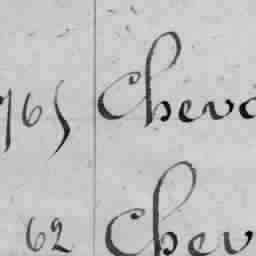 765 Chev
62 Chev